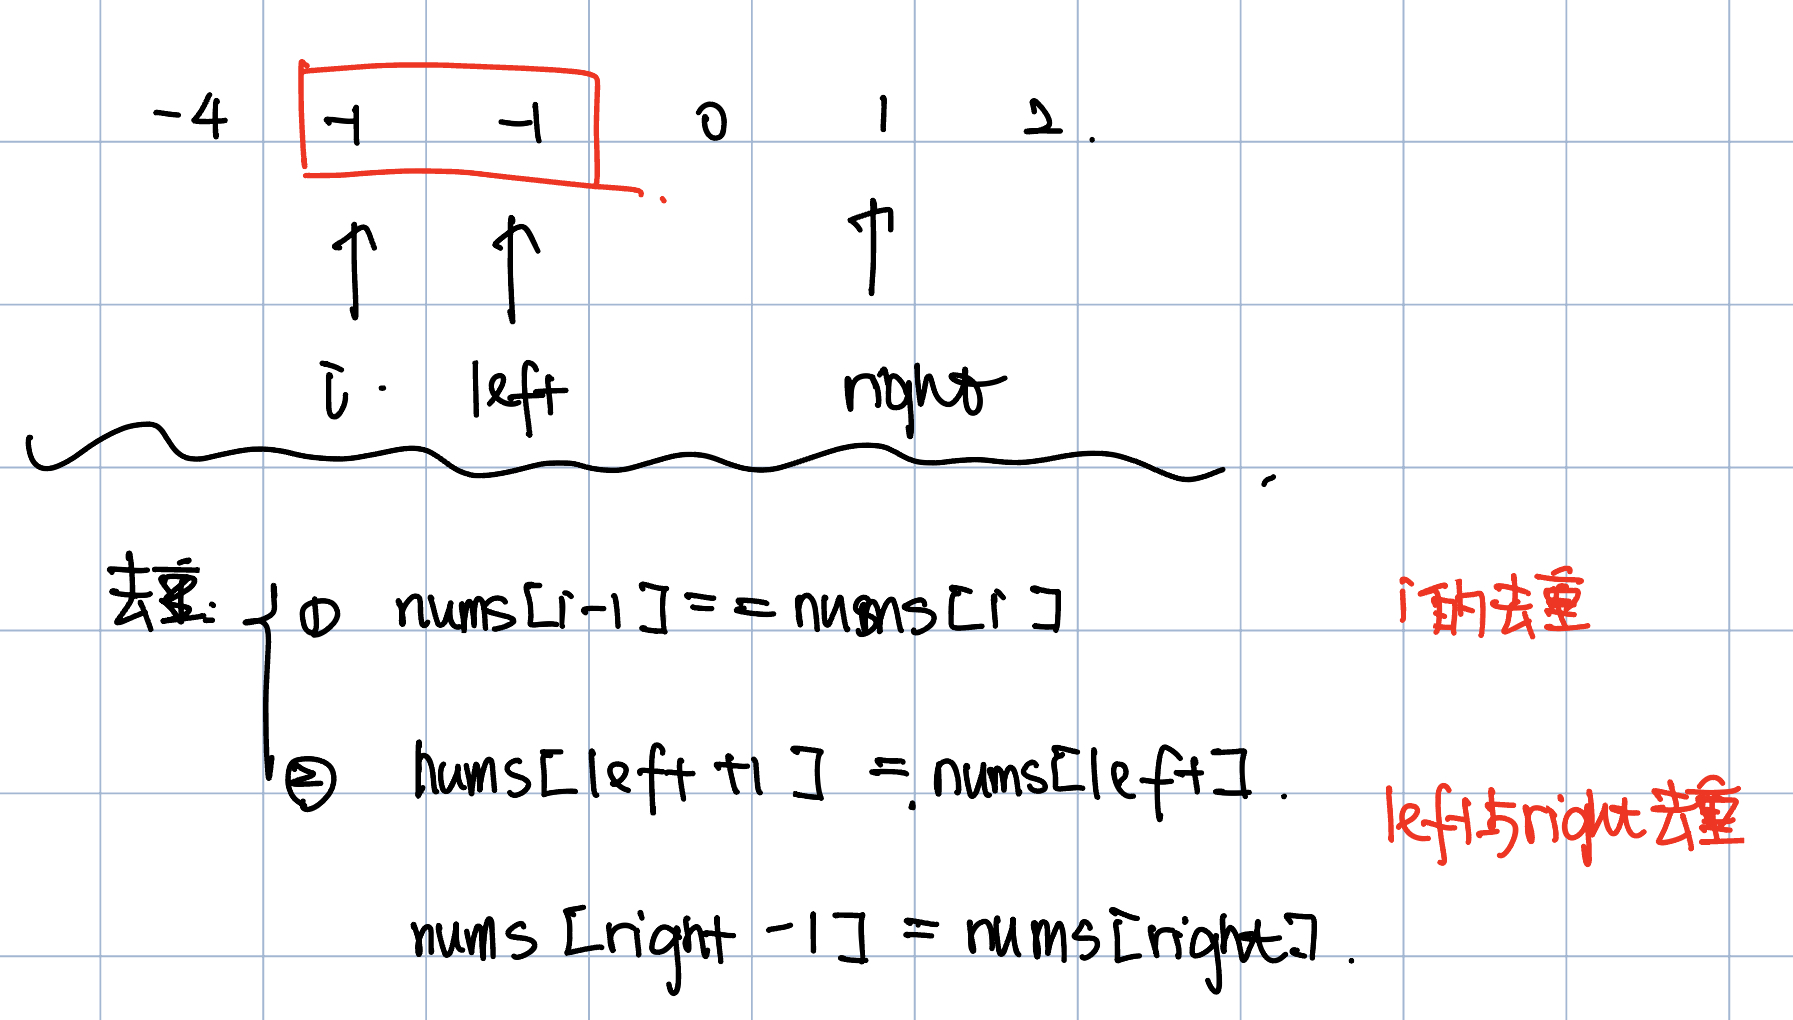 -4 -1 -1 0 1 2.
i. left right
去重: ① nums[i-1]==nums[i] i的去重
② nums[left+1] = nums[left].
left与right去重
nums[right-1] = nums[right].